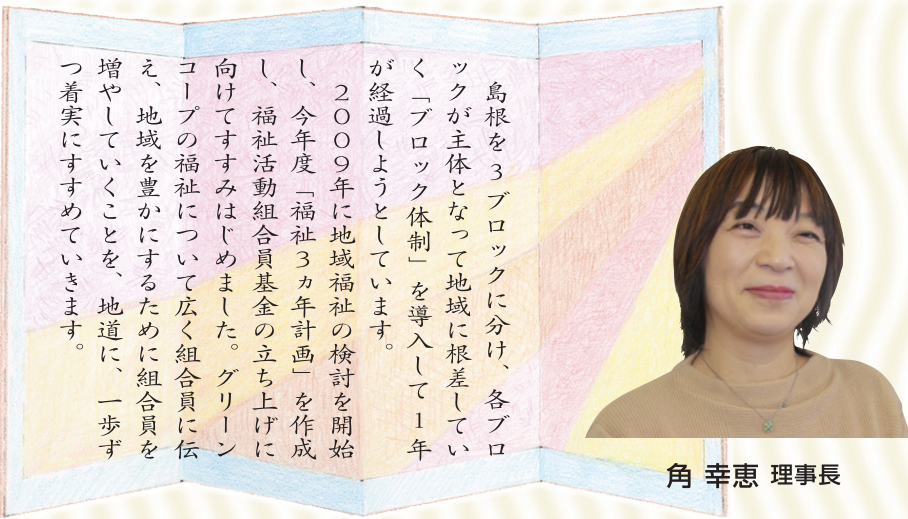 島根を3ブロックに分け、各ブロ
ックが主体となって地域に根差してい
く「ブロック体制」を導入して1年
が経過しようとしています。
2009年に地域福祉の検討を開始
し、今年度「福祉3ヵ年計画」を作成
し、福祉活動組合員基金の立ち上げに
向けてすすみはじめました。グリーン
コープの福祉について広く組合員に伝
え、地域を豊かにするために組合員を
増やしていくことを、地道に、一歩ず
つ着実にすすめていきます。
角 幸恵 理事長